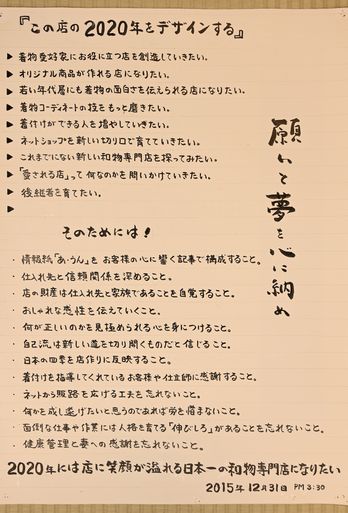 『この店の2020年をデザインする』
▶ 着物愛好家にお役に立つ店を創造していきたい。
▶ オリジナル商品が作れる店になりたい。
▶ 若い年代層にも着物の面白さを伝えられる店になりたい。
▶ 着物コーディネートの技をもっと磨きたい。
▶ 着付けができる人を増やしていきたい。
▶ ネットショップを新しい切り口で育てていきたい。
▶ これまでにない新しい和物専門店を探ってみたい。
▶ 「愛される店」って何なのかを問いかけていきたい。
▶ 後継者を育てたい。
▶
願いと夢を心に納め
そのためには!
・ 情報紙「あ・うん」をお客様の心に響く記事で構成すること。
・ 仕入れ先と信頼関係を深めること。
・ 店の財産は仕入れ先と家族であることを自覚すること。
・ おしゃれな感性を伝えていくこと。
・ 何が正しいのかを見極められる心を身につけること。
・ 自己流は切り新しい道を切り開くものだと信じること。
・ 日本の四季を店作りに反映すること。
・ 着付けを指導してくれているお客様や仕立師に感謝すること。
・ ネットから販路を広げる工夫を忘れないこと。
・ 何かを成し遂げたいと思うのであれば労を惜まないこと。
・ 面倒な仕事や作業には人格を育てる「伸びしろ」があることを忘れないこと。
・ 健康管理と妻への感謝を忘れないこと。
2020年には店に笑顔が溢れる日本一の和物専門店になりたい
2015年12月31日 PM 3:30